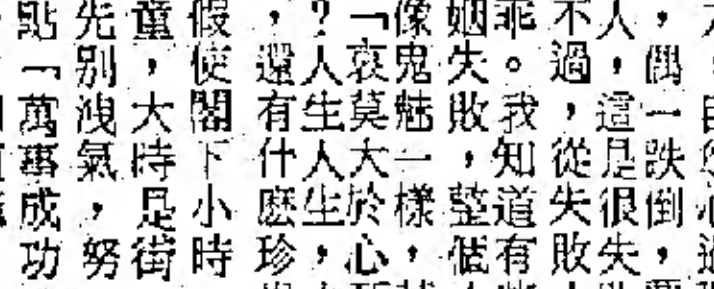 ，偶一跌倒，
人，這是很失
不過，從失敗
乖。我知道有
姻失敗，整個
像鬼魅一樣，
「哀莫大於心
？人生人生，
，還有什麽珍
假使閣下小時
童，大時是街
先別洩氣，努
點「萬事成功